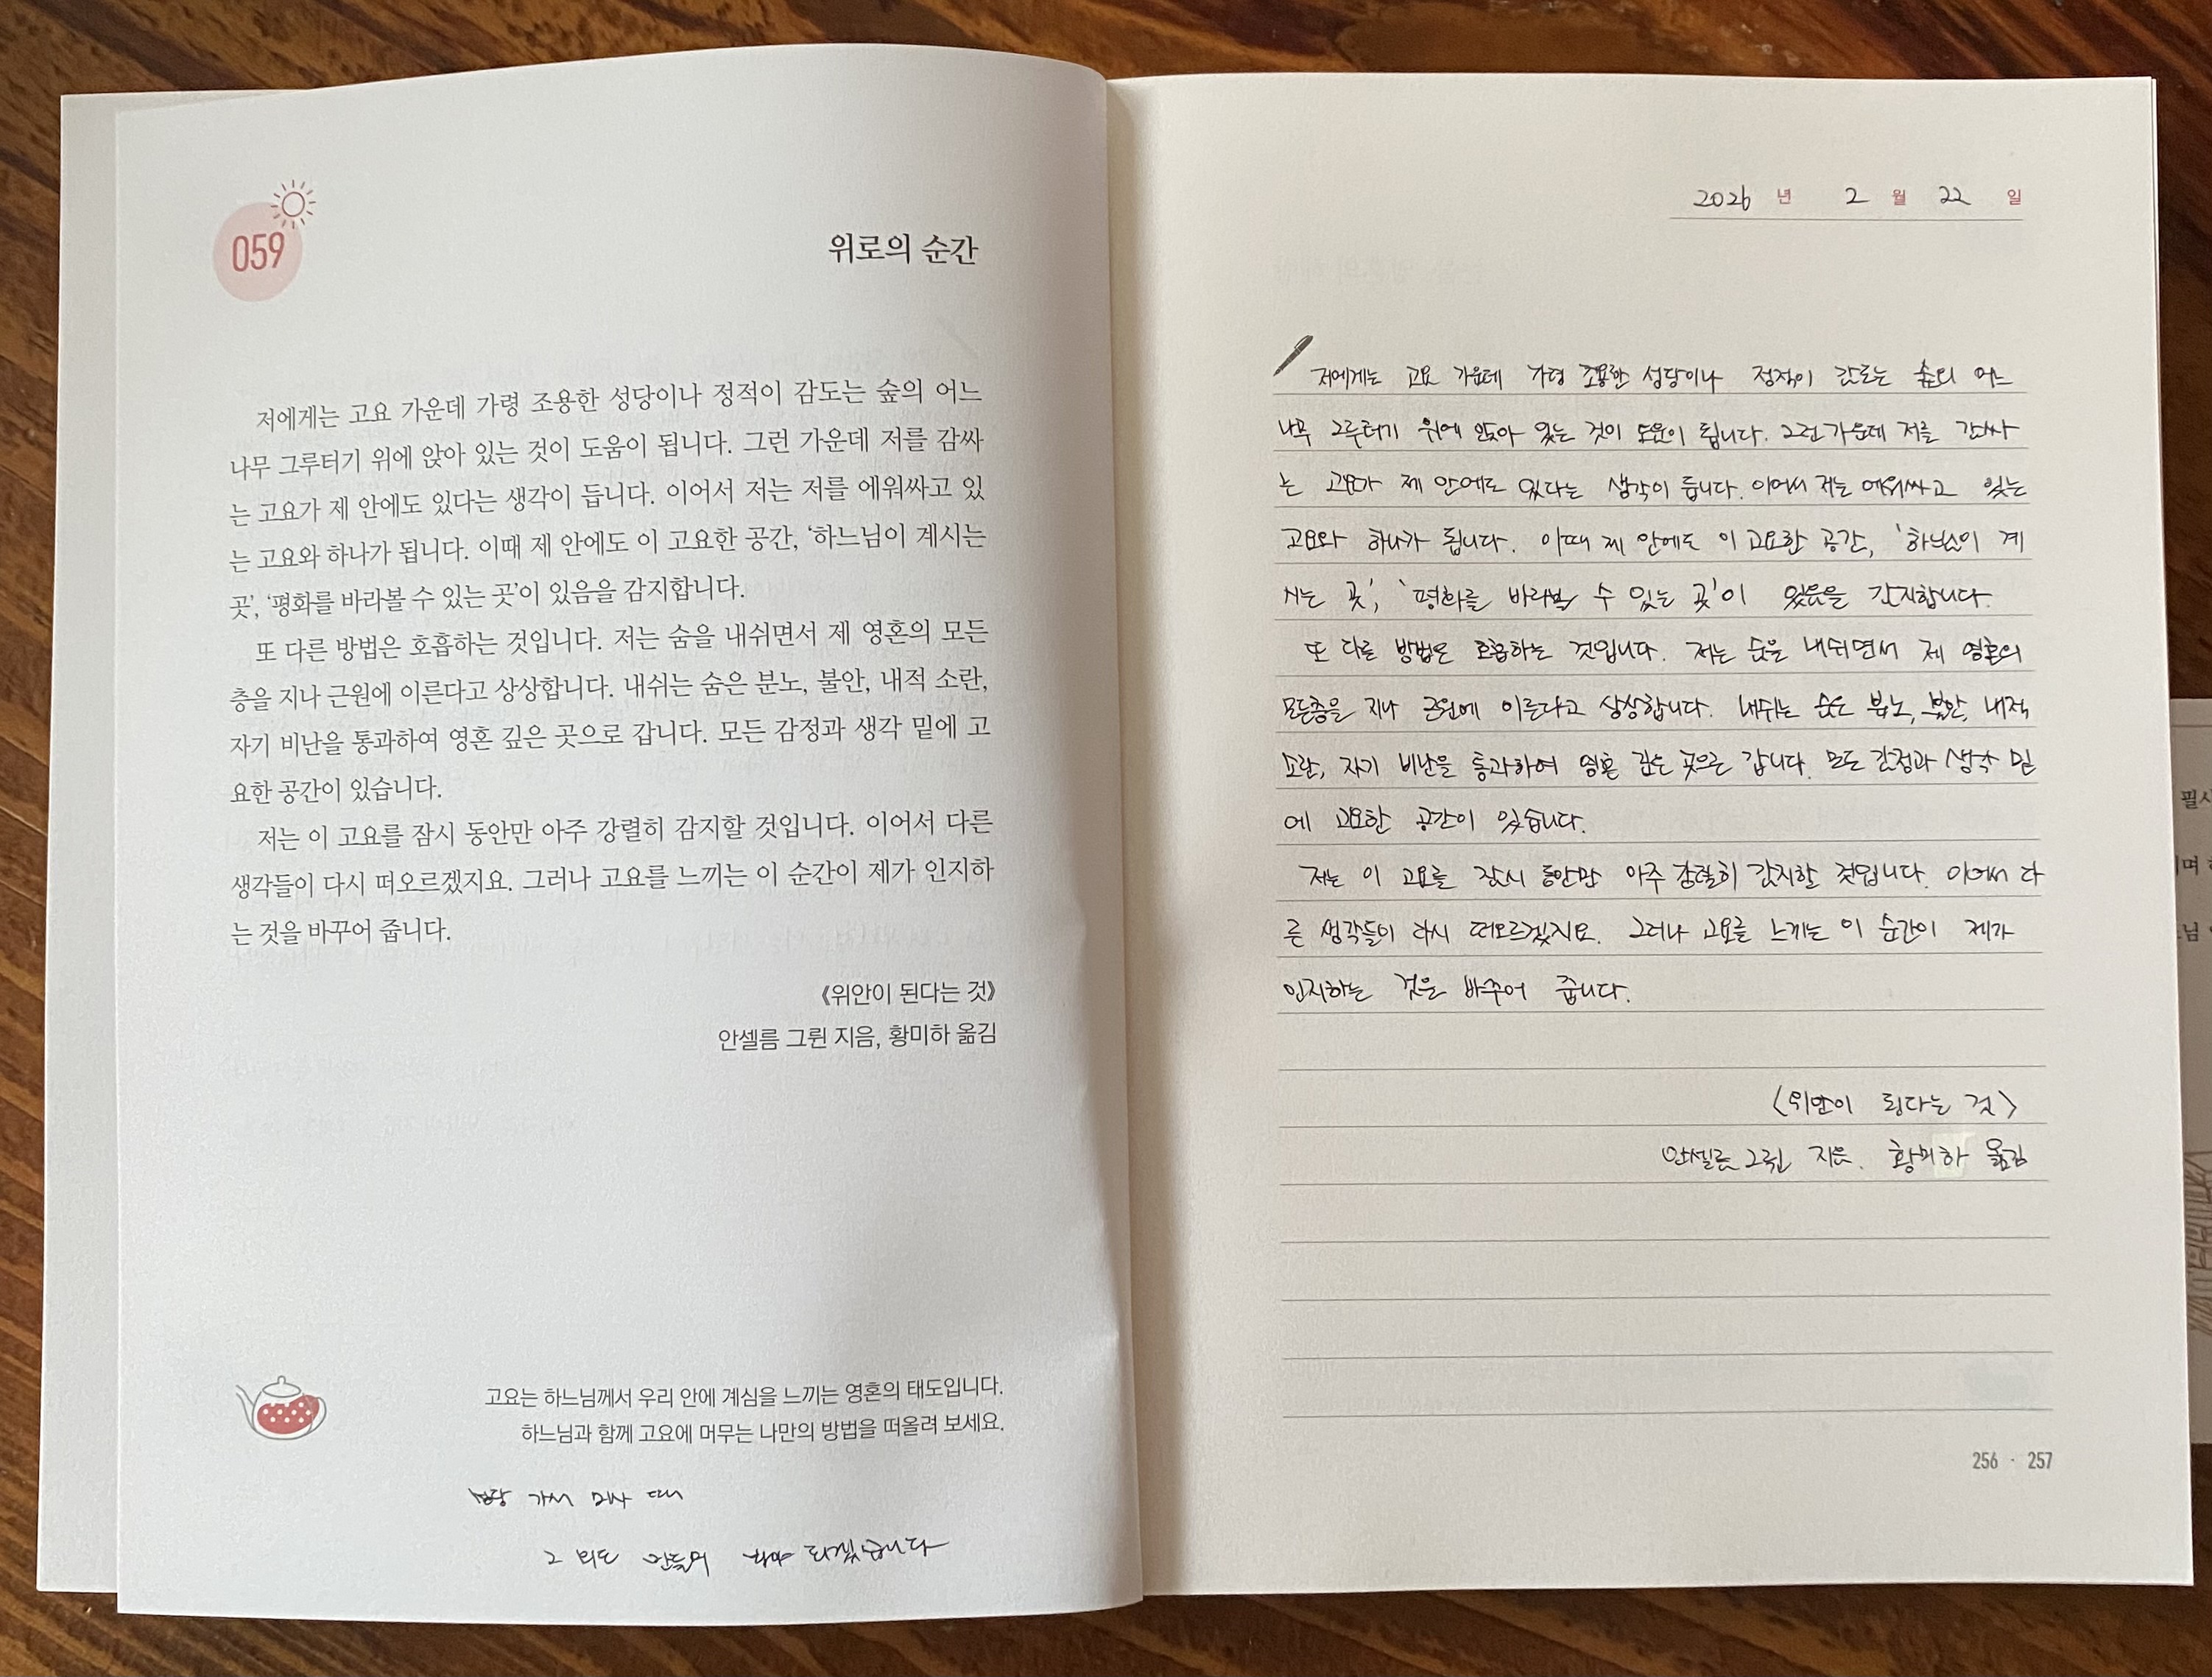 059
위로의 순간
저에게는 고요 가운데 가령 조용한 성당이나 정적이 감도는 숲의 어느
나무 그루터기 위에 앉아 있는 것이 도움이 됩니다. 그런 가운데 저를 감싸
는 고요가 제 안에도 있다는 생각이 듭니다. 이어서 저는 저를 에워싸고 있
는 고요와 하나가 됩니다. 이때 제 안에도 이 고요한 공간, ‘하느님이 계시는
곳’, ‘평화를 바라볼 수 있는 곳’이 있음을 감지합니다.
또 다른 방법은 호흡하는 것입니다. 저는 숨을 내쉬면서 제 영혼의 모든
층을 지나 근원에 이른다고 상상합니다. 내쉬는 숨은 분노, 불안, 내적 소란,
자기 비난을 통과하여 영혼 깊은 곳으로 갑니다. 모든 감정과 생각 밑에 고
요한 공간이 있습니다.
저는 이 고요를 잠시 동안만 아주 강렬히 감지할 것입니다. 이어서 다른
생각들이 다시 떠오르겠지요. 그러나 고요를 느끼는 이 순간이 제가 인지하
는 것을 바꾸어 줍니다.
《위안이 된다는 것》
안셀름 그륀 지음, 황미하 옮김
고요는 하느님께서 우리 안에 계심을 느끼는 영혼의 태도입니다.
하느님과 함께 고요에 머무는 나만의 방법을 떠올려 보세요.
가서 미사 때
그 외도 만들어 봐야 되겠습니다
2026 년 2 월 22 일
저에게는 고요 가운데 가령 조용한 성당이나 정적이 감도는 숲의 어느
나무 그루터기 위에 앉아 있는 것이 도움이 됩니다. 그런 가운데 저를 감싸
는 고요가 제 안에도 있다는 생각이 듭니다. 이어서 저는 에워싸고 있는
고요와 하나가 됩니다. 이때 제 안에도 이 고요한 공간, '하느님이 계
시는 곳', '평화를 바라볼 수 있는 곳'이 있음을 감지합니다.
또 다른 방법은 호흡하는 것입니다. 저는 숨을 내쉬면서 제 영혼의
모든층을 지나 근원에 이른다고 상상합니다. 내쉬는 숨은 분노, 불안, 내적
소란, 자기 비난을 통과하여 영혼 깊은 곳으로 갑니다. 모든 감정과 생각 밑
에 고요한 공간이 있습니다.
저는 이 고요를 잠시 동안만 아주 강렬히 감지할 것입니다. 이어서 다
른 생각들이 다시 떠오르겠지요. 그러나 고요를 느끼는 이 순간이 제가
인지하는 것을 바꾸어 줍니다.
<위안이 된다는 것>
안셀름 그륀 지음. 황미하 옮김
256 · 257
필사